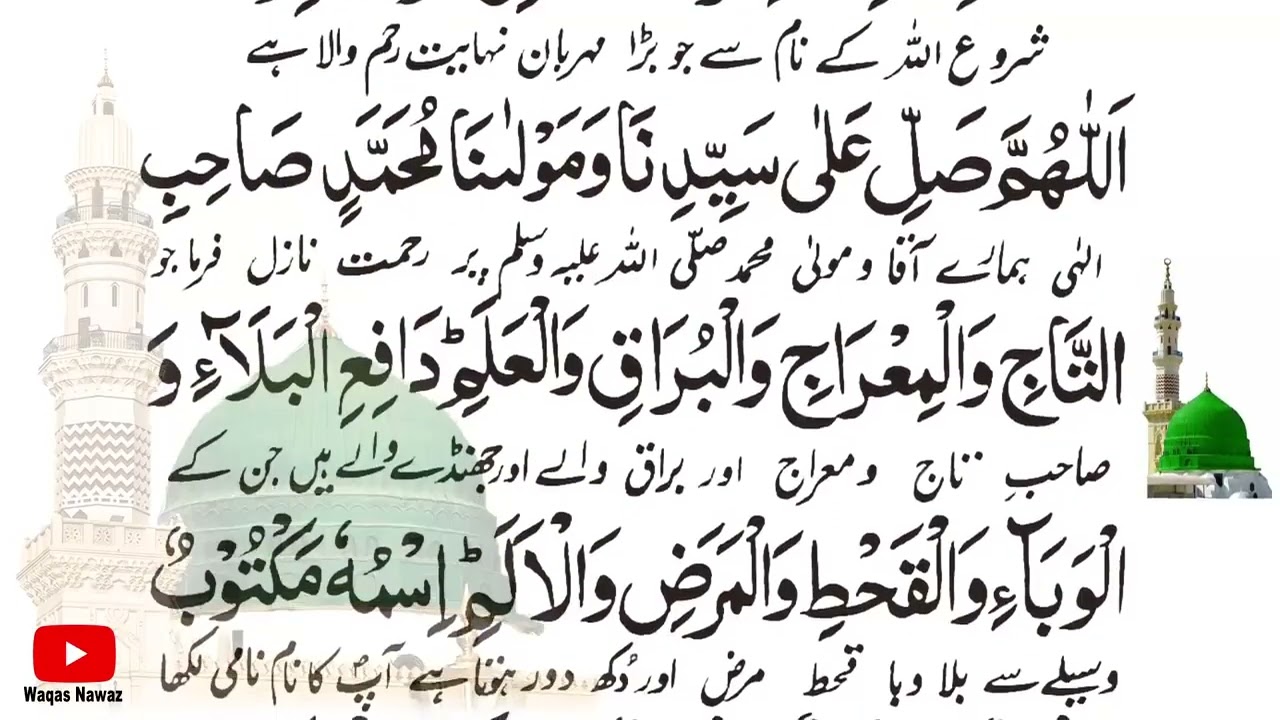 شروع اللہ کے نام سے جو بڑا مہربان نہایت رحم والا ہے
اَللّٰهُمَّ صَلِّ عَلٰى سَيِّدِنَا وَمَوْلٰىنَا مُحَمَّدٍ صَاحِبِ
الٰہی ہمارے آقا و مولیٰ محمد صلّی اللہ علیہ وسلم پر رحمت نازل فرما جو
التَّاجِ وَالْمِعْرَاجِ وَالْبُرَاقِ وَالْعَلَمِ ؕ دَافِعِ الْبَلَآءِ وَ
صاحبِ تاج و معراج اور براق والے اور جھنڈے والے ہیں جن کے
الْوَبَآءِ وَالْقَحْطِ وَالْمَرَضِ وَالْاَلَمِ ؕ اِسْمُهٗ مَكْتُوْبٌ
وسیلے سے بلا وبا قحط مرض اور دُکھ دور ہوتا ہے آپ کا نام نامی لکھا
Waqas Nawaz